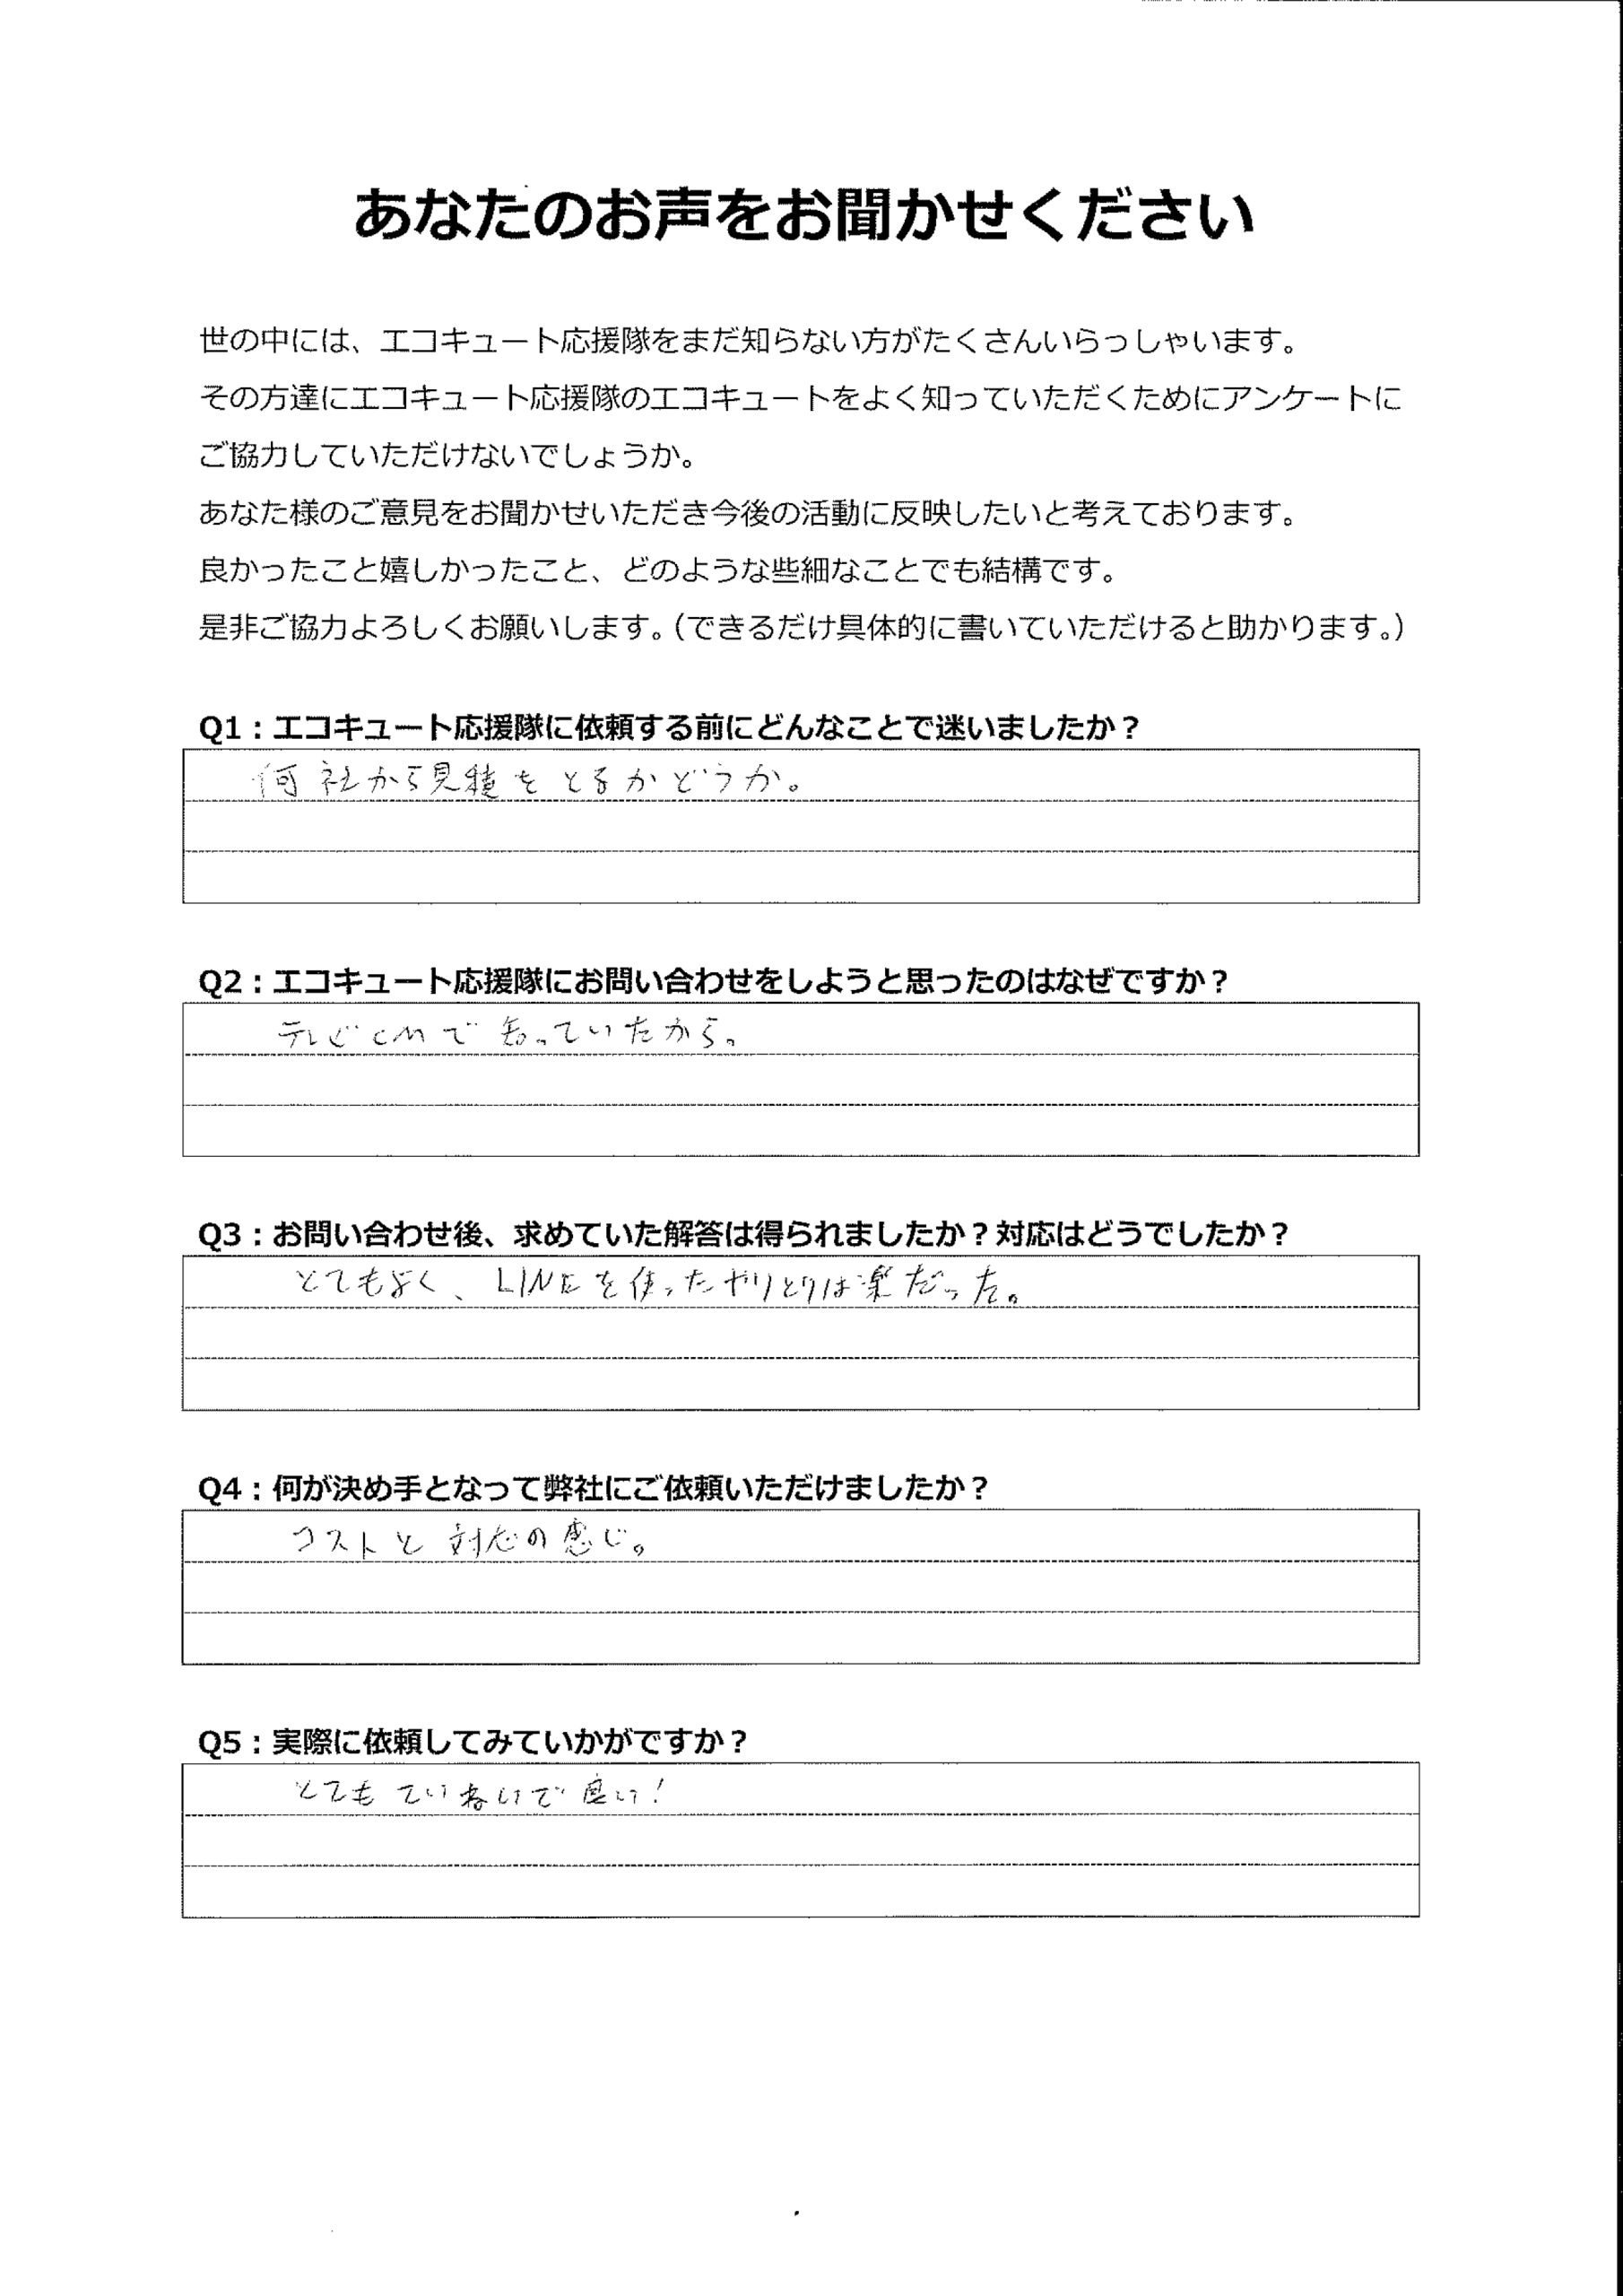 あなたのお声をお聞かせください
世の中には、エコキュート応援隊をまだ知らない方がたくさんいらっしゃいます。
その方達にエコキュート応援隊のエコキュートをよく知っていただくためにアンケートに
ご協力していただけないでしょうか。
あなた様のご意見をお聞かせいただき今後の活動に反映したいと考えております。
良かったこと嬉しかったこと、どのような些細なことでも結構です。
是非ご協力よろしくお願いします。（できるだけ具体的に書いていただけると助かります。）
Q1：エコキュート応援隊に依頼する前にどんなことで迷いましたか？
何社から見積をとるかどうか。
Q2：エコキュート応援隊にお問い合わせをしようと思ったのはなぜですか？
テレビCMで知っていたから。
Q3：お問い合わせ後、求めていた解答は得られましたか？対応はどうでしたか？
とてもよく、LINEを使ったやりとりは楽だった。
Q4：何が決め手となって弊社にご依頼いただけましたか？
コストと対応の感じ。
Q5：実際に依頼してみていかがですか？
とてもていねいで良い！